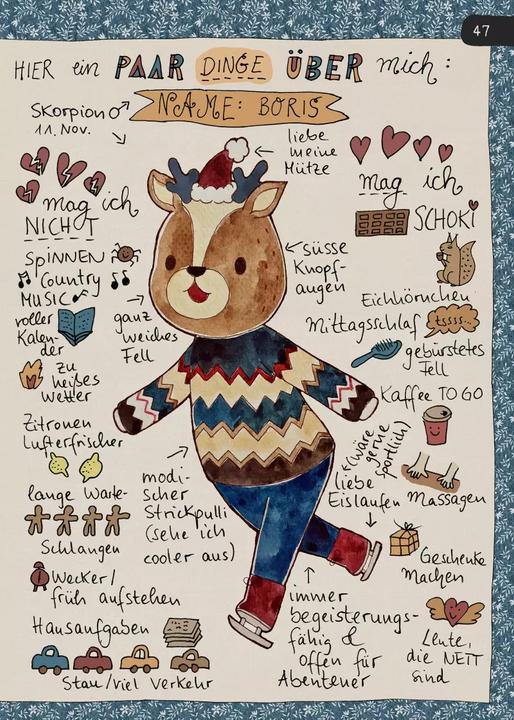 47
HIER ein PAAR DINGE ÜBER mich:
NAME: BORIS
Skorpion ♂
11. Nov.
mag ich
NICHT
SPiNNEN
Country
MUSIC
voller
Kalen-
der
zu
heißes
Wetter
Zitronen
Lufterfrischer
lange Warte-
Schlangen
Wecker/
früh aufstehen
Hausaufgaben
Stau/viel Verkehr
ganz
weiches
Fell
modi-
scher
Strickpulli
(sehe ich
cooler aus)
liebe
meine
Mütze
süsse
Knopf-
augen
mag ich
SCHOKi
Eichhörnchen
Mittagsschlaf
tssss...
gebürstetes
Fell
Kaffee TO GO
Massagen
liebe
Eislaufen
(wäre
gerne
sportlich)
Geschenke
Machen
immer
begeisterungs-
fähig &
offen für
Abenteuer
Leute,
die NETT
sind